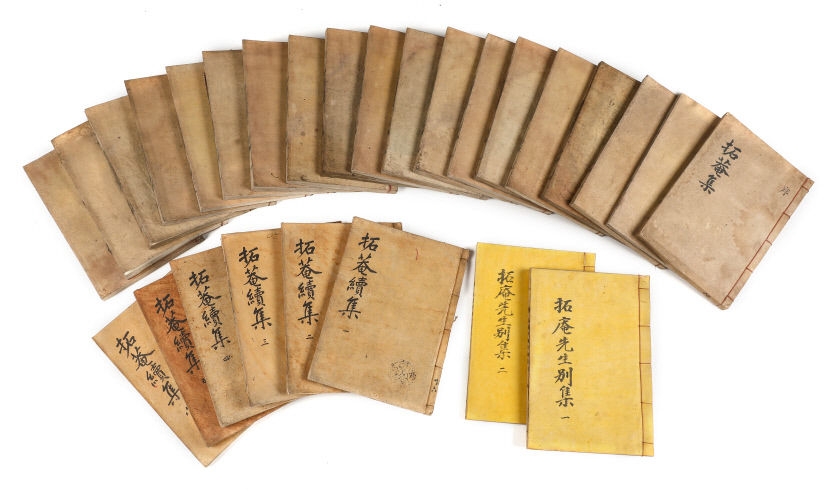 拓菴集
序
拓菴續集
拓菴續集 二
拓菴續集 三
拓菴續集 四
拓菴續集
拓菴續集
拓庵先生别集 二
拓庵先生别集 一